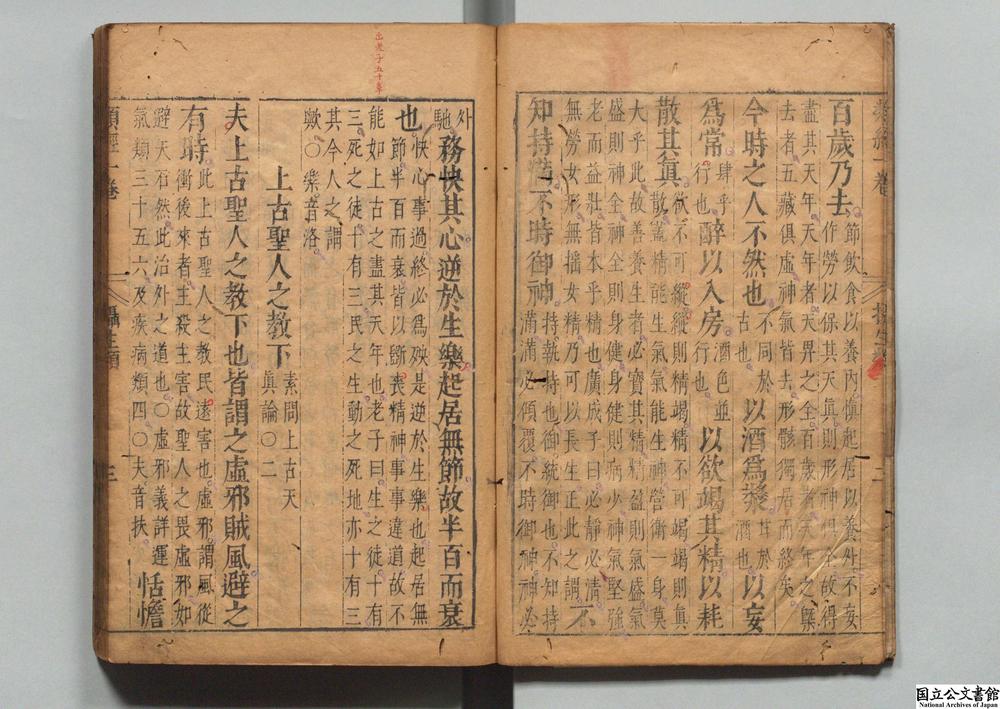 類經一卷 攝生類 二
百歲乃去
節飲食以養內慎起居以養外不妄
作勞以保其天眞則形神俱全故得
盡其天年天年者天畀之全百歲者天年之槩
去者五藏俱虛神氣皆去形骸獨居而終矣
今時之人不然也
不同於
古也
以酒爲漿
甘於
酒也
以妄
爲常
肆乎
行也
醉以入房
酒色並
行也
以欲竭其精以耗
散其眞
欲不可縱縱則精竭精不可竭竭則眞
散蓋精能生氣氣能生神營衛一身莫
大乎此故善養生者必寶其精精盈則氣盛氣
盛則神全神全則身健身健則病少神氣堅強
老而益壯皆本乎精也廣成子曰必靜必清
無勞女形無搖女精乃可以長生正此之謂
不
知持滿不時御神
持執持也御統御也不知持
滿滿必傾覆不時御神神必
外
馳
務快其心逆於生樂起居無節故半百而衰
也
快心事過終必爲殃是逆於生樂也起居無
節半百而衰皆以斲喪精神事事違道故不
出老子五十章
能如上古之盡其天年也老子曰生之徒十有
三死之徒十有三民之生動之死地亦十有三
其今人之謂
歟○樂音洛
上古聖人之教下
素問上古天
眞論○二
夫上古聖人之教下也皆謂之虛邪賊風避之
有時
此上古聖人之教民遠害也虛邪謂風從
衝後來者主殺主害故聖人之畏虛邪如
避矢石然此治外之道也○虛邪義詳運
氣類三十五六及疾病類四○夫音扶
恬憺
類經一卷 攝生類 三
国立公文書館
National Archives of Japan